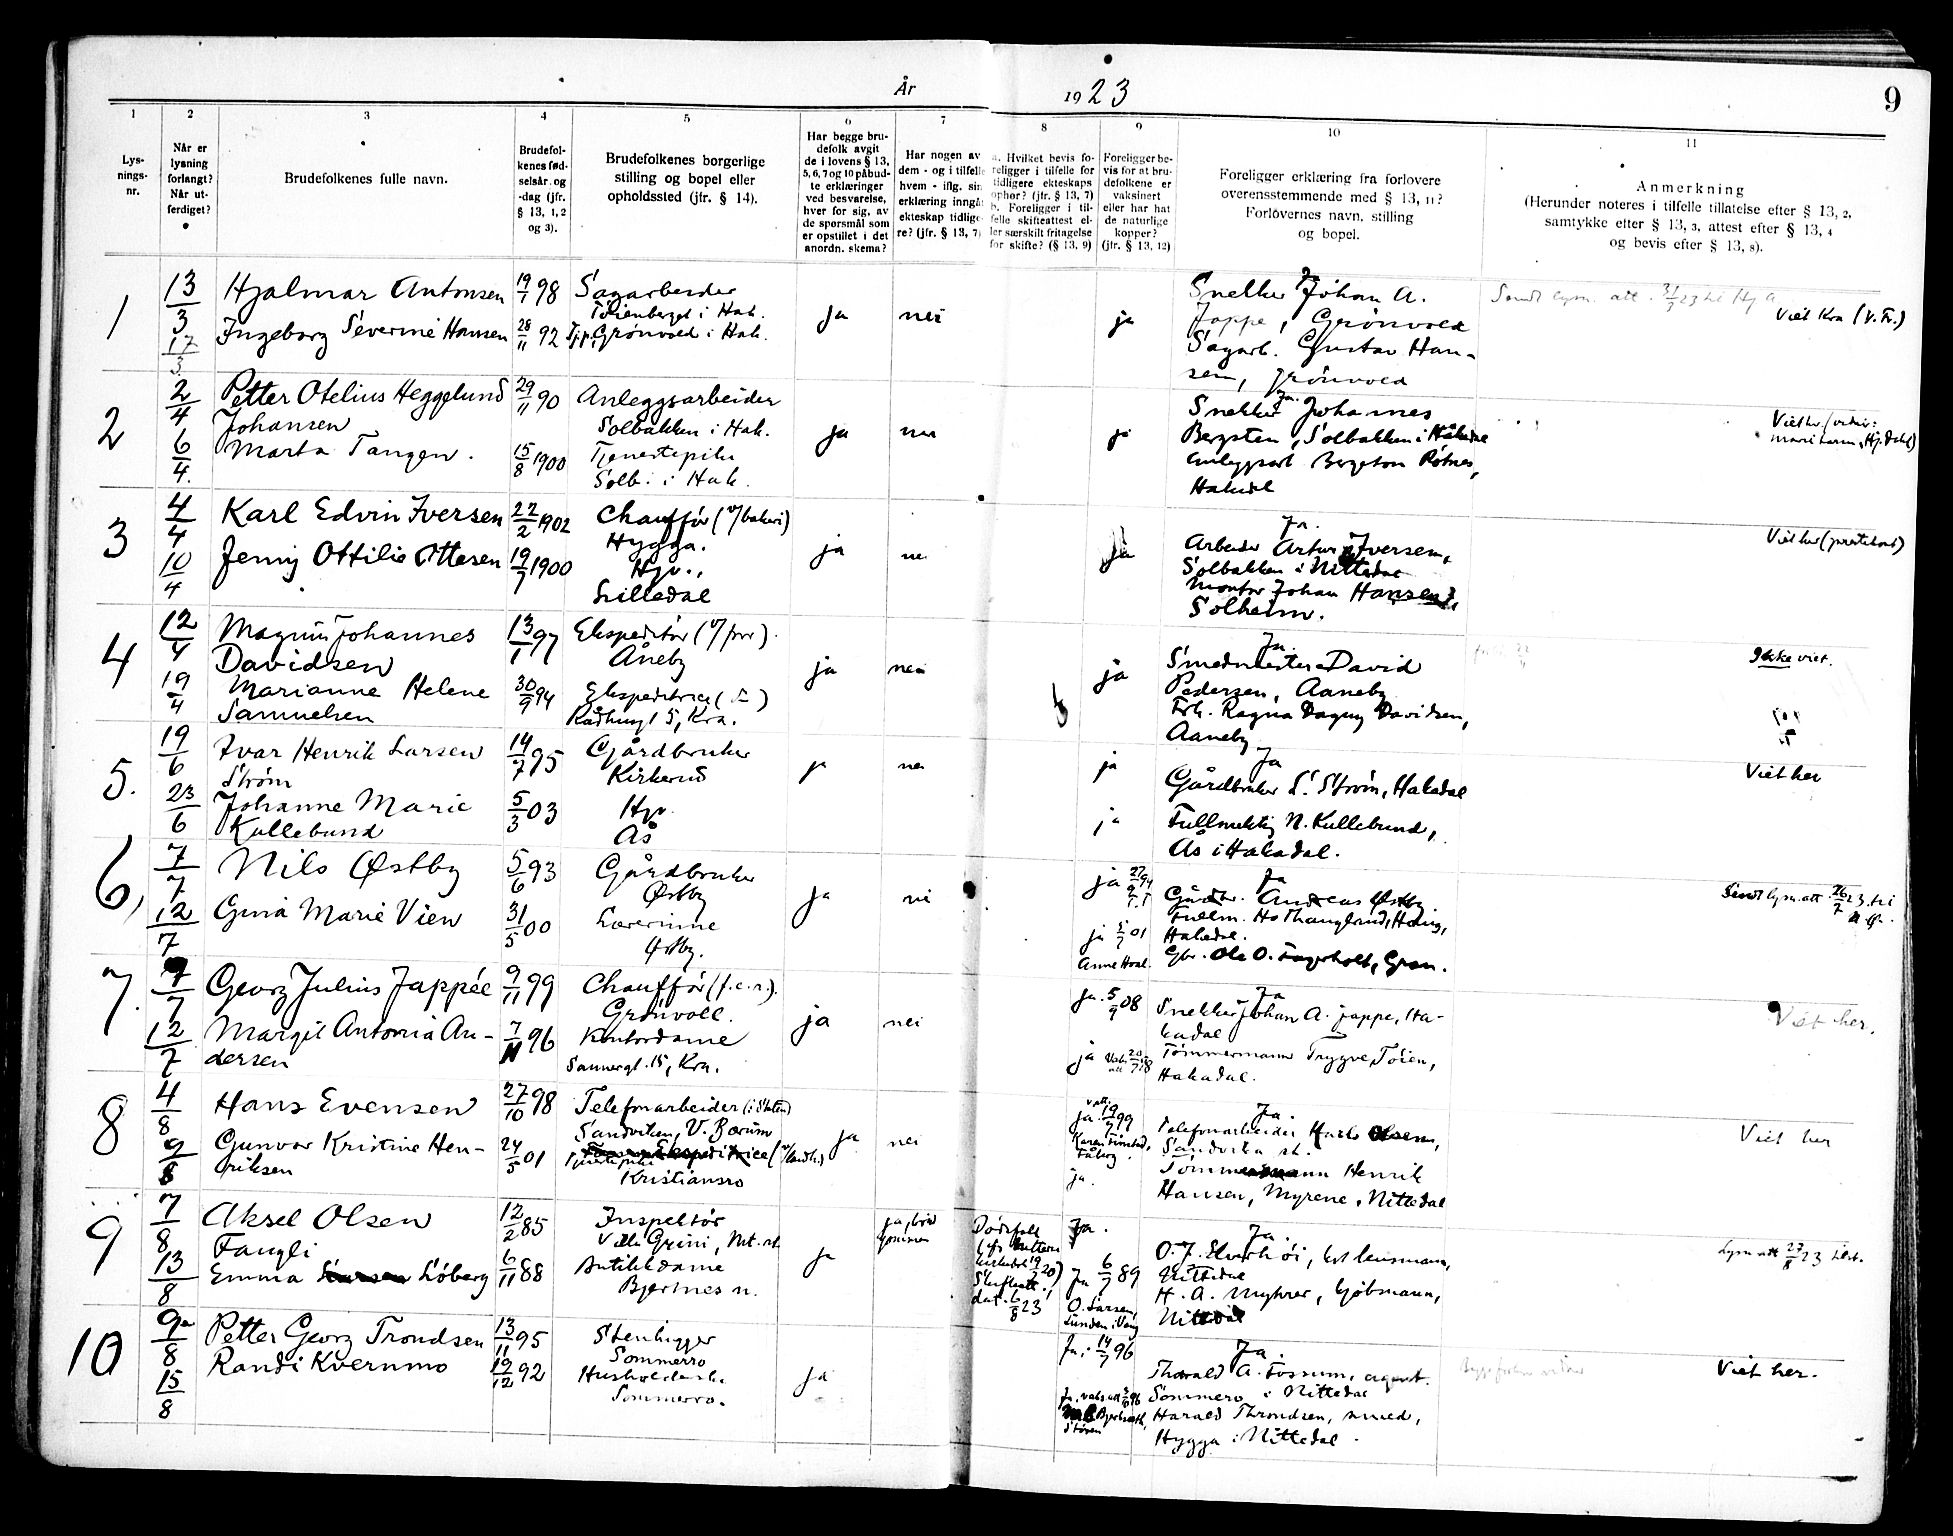 År 1923
9
1
2
3
4
5
6
7
8
9
10
11
Lys-
nings-
nr.
Når er
lysning
forlangt?
Når ut-
ferdiget?
Brudefolkenes fulle navn.
Brudefol-
kenes fød-
selsår og
-dag (jfr.
§ 13, 1, 2
og 3).
Brudefolkenes borgerlige
stilling og bopel eller
opholdssted (jfr. § 14).
Har begge bru-
defolk avgit
de i lovens § 13,
5, 6, 7 og 10 påbud-
te erklæringer
ved besvarelse,
hver for sig, av
de spørsmål som
er opstillet i det
anordn. skema?
Har nogen av
dem - og i tilfelle
hvem - iflg. sin
erklæring inngåt
ekteskap tidlige-
re? (jfr. § 13, 7)
a. Hvilket bevis fo-
religger i tilfelle for
tidligere ekteskaps
ophør? (jfr. § 13, 7)
b. Foreligger i til-
felle skifteattest el-
ler særskilt fritagelse
for skifte? (§ 13, 9)
Foreligger be-
vis for at bru-
defolkene er
vaksinert
eller har hat
de naturlige
kopper?
(jfr. § 13, 12)
Foreligger erklæring fra forlovere
overensstemmende med § 13, 11?
Forlovernes navn, stilling
og bopel.
Anmerkning
(Herunder noteres i tilfelle tillatelse efter § 13, 2,
samtykke efter § 13, 3, attest efter § 13, 4
og bevis efter § 13, 8).
1
13/3
17/3
Hjalmar Antonsen
Ingeborg Severine Hansen
19/1 98
28/11 92
Sagarbeider
Tøienberget i Hak.
Grønvold i Hak.
ja
nei
ja
Ja
Snekker Johan A.
Jappe, Grønvold
Sagarb. Gustav Han-
sen, Grønvold
Sendt lysn. att. 31/3 23 til Hj. A
Viet Kra (V. Fr.)
2
2/4
6/4
Petter Otelius Heggelund
Johansen
Marta Tangen.
29/11 90
15/8 1900
Anleggsarbeider
Solbakken i Hak.
Tjenestepike
Solb. i Hak.
ja
nei
ja
Ja.
Snekker Johannes
Bergsten, Solbakken i Hakadal
Anleggsarb Bergeton Rotnes,
Hakadal
3
4/4
10/4
Karl Edvin Iversen
Jenny Ottilie Ottesen
22/2 1902
19/7 1900
Chauffør (v/bakeri)
Hygga.
Hjv.,
Lilledal
ja
nei
ja
Ja.
Arbeider Artur Iversen,
Solbakken i Nittedal
Montør Johan Hansen,
Solheim.
4
12/4
19/4
Magnus Johannes
Davidsen
Marianne Helene
Samuelsen
13/1 97
30/9 94
Ekspeditør (v/forr).
Åneby
Ekspeditrice
Rådhusgt 5, Kra.
ja
nei
ja
Ja.
Smedmester David
Pedersen, Aaneby
Frk. Ragna Dagny Davidsen,
Aaneby
Ikke viet.
5.
19/6
23/6
Ivar Henrik Larsen
Strøm
Johanne Marie
Kullebund
14/7 95
5/3 03
Gårdbruker
Kirkerud
Hjv.
Ås
ja
nei
ja
ja
Ja
Gårdbruker L. Strøm, Hakadal
Fullmektig N. Kullebund,
Ås i Hakadal.
Viet her
6,
7/7
12/7
Nils Østby
Gina Marie Vien
5/6 93
31/5 00
Gårdbruker
Østby
Lærerinne
Østby.
ja
nei
ja
ja
Anne Hval.
Ja
Gårdbr. Andreas Østby.
Hakadal.
Gbr. Ole O. Fagerholt, Gran.
Sendt lysn. att. 26/7 23 til
7.
9/7
12/7
Georg Julius Jappée
Margit Antonia An-
dersen
9/11 99
7/11 96
Chauffør (f.e.r.).
Grønvoll.
Kontordame
Sannergt. 15, Kra.
ja
nei
ja. 5/9 08
ja
Ja
Snekker Johan A. Jappe, Ha-
kadal
Tømmermann Trygve Tøien,
Hakadal.
Viet her.
8
4/8
9/8
Hans Evensen
Gunvor Kristine Hen-
riksen
27/10 98
24/5 01
Telefonarbeider (i Staten)
Sandviken, V. Bærum
Tjenestepike
Kristiansro
ja
nei
ja. 19/7 99
ja.
Ja.
Telefonarbeider Olsen,
Sandvika st.
Tømmermann Henrik
Hansen, Myrene, Nittedal
Viet her
9
7/8
13/8
Aksel Olsen
Fangli
Emma Løberg
12/2 85
6/11 88
Inspektør
Villa Grini, Nit. st.
Butikkdame
Bjertnes n.
ja
Ja.
Ja 6/7 89
O. Larsen,
Lunden i Vang
Ja.
O. J. Elverhøi, lensmann,
Nittedal
H. A. Myhrer, Kjøbmann,
Nittedal
Lysn. att 27/8 23
10
9/8
15/8
Petter Georg Trondsen
Randi Kvernmo
13/11 95
19/12 92
Stenhugger
Sommerro
Husholderske
Sommerro.
ja
Ja. 14/7 96
Ja.
Thorald A. Fossum, agent.
Sommero i Nittedal
Harald Throndsen, smed,
Hygga i Nittedal.
Viet her.